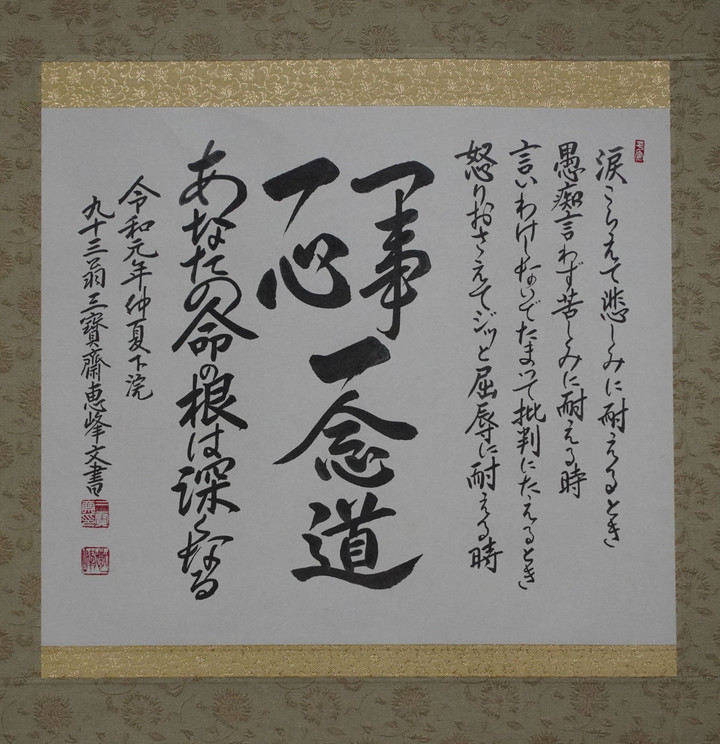 涙こらえて悲しみに耐えるとき
愚痴言わず苦しみに耐える時
言いわけしないでだまって批判にたえるとき
怒りおさえてジッと屈辱に耐える時
一事
一心
一念道
あなたの命の根は深くなる
令和元年仲夏下浣
九十三翁三寶齋恵峰文書